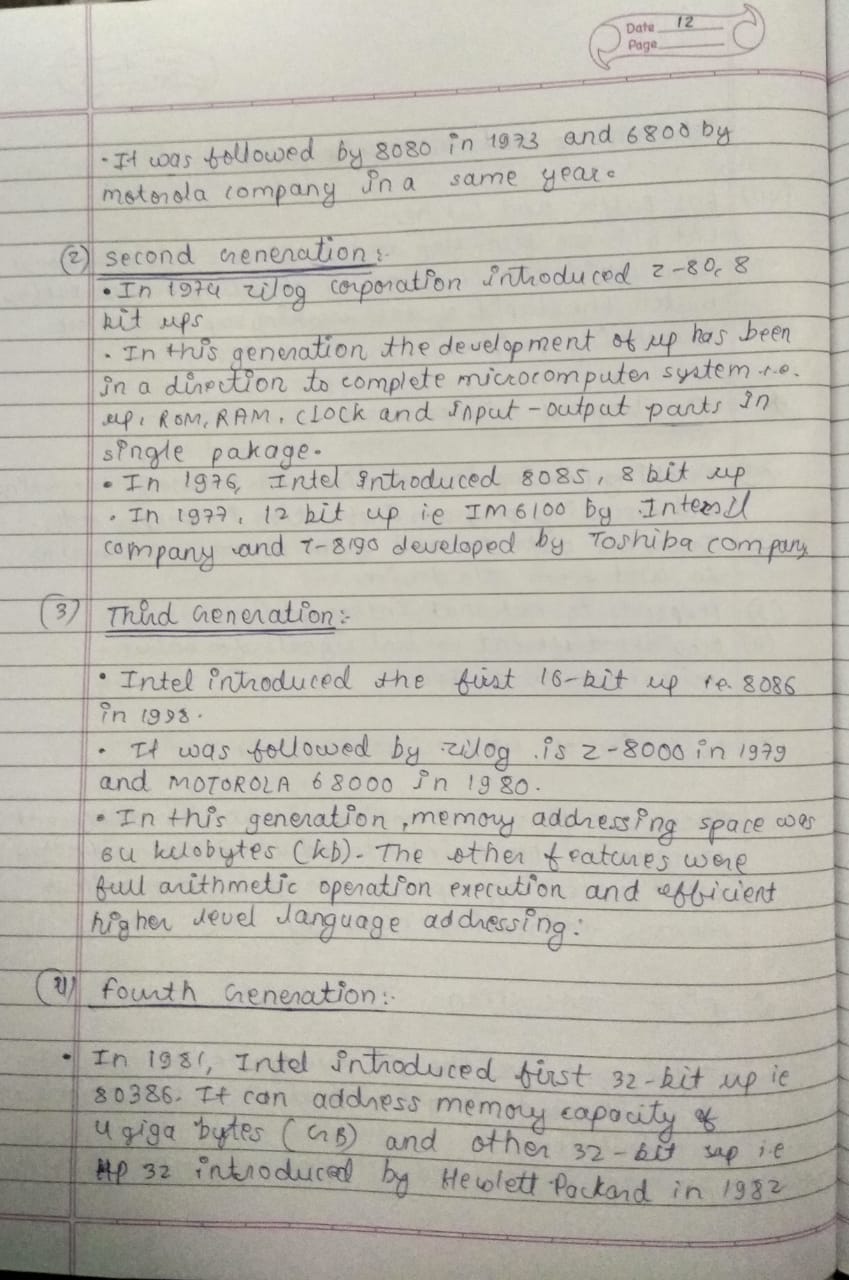 Date 12
Page
• It was followed by 8080 in 1973 and 6800 by
motorola company in a same year.
(2) Second Generation :-
• In 1974 zilog corporation introduced z-80, 8
bit ups
• In this generation the development of up has been
in a direction to complete microcomputer system i.e.
up, ROM, RAM, clock and input-output parts in
single pakage.
• In 1976, Intel introduced 8085, 8 bit up
• In 1977, 12 bit up ie IM6100 by Intersil
company and T-8190 developed by Toshiba company
(3) Third Generation :-
• Intel introduced the first 16-bit up i.e. 8086
in 1998.
• It was followed by zilog is z-8000 in 1979
and MOTOROLA 68000 in 1980.
• In this generation, memory addressing space was
64 kilobytes (kb). The other features were
full arithmetic operation execution and efficient
higher level language addressing:
(4) fourth Generation :-
• In 1981, Intel introduced first 32-bit up ie
80386. It can address memory capacity of
4 giga bytes (GB) and other 32-bit up i.e
HP 32 introduced by Hewlett Packard in 1982